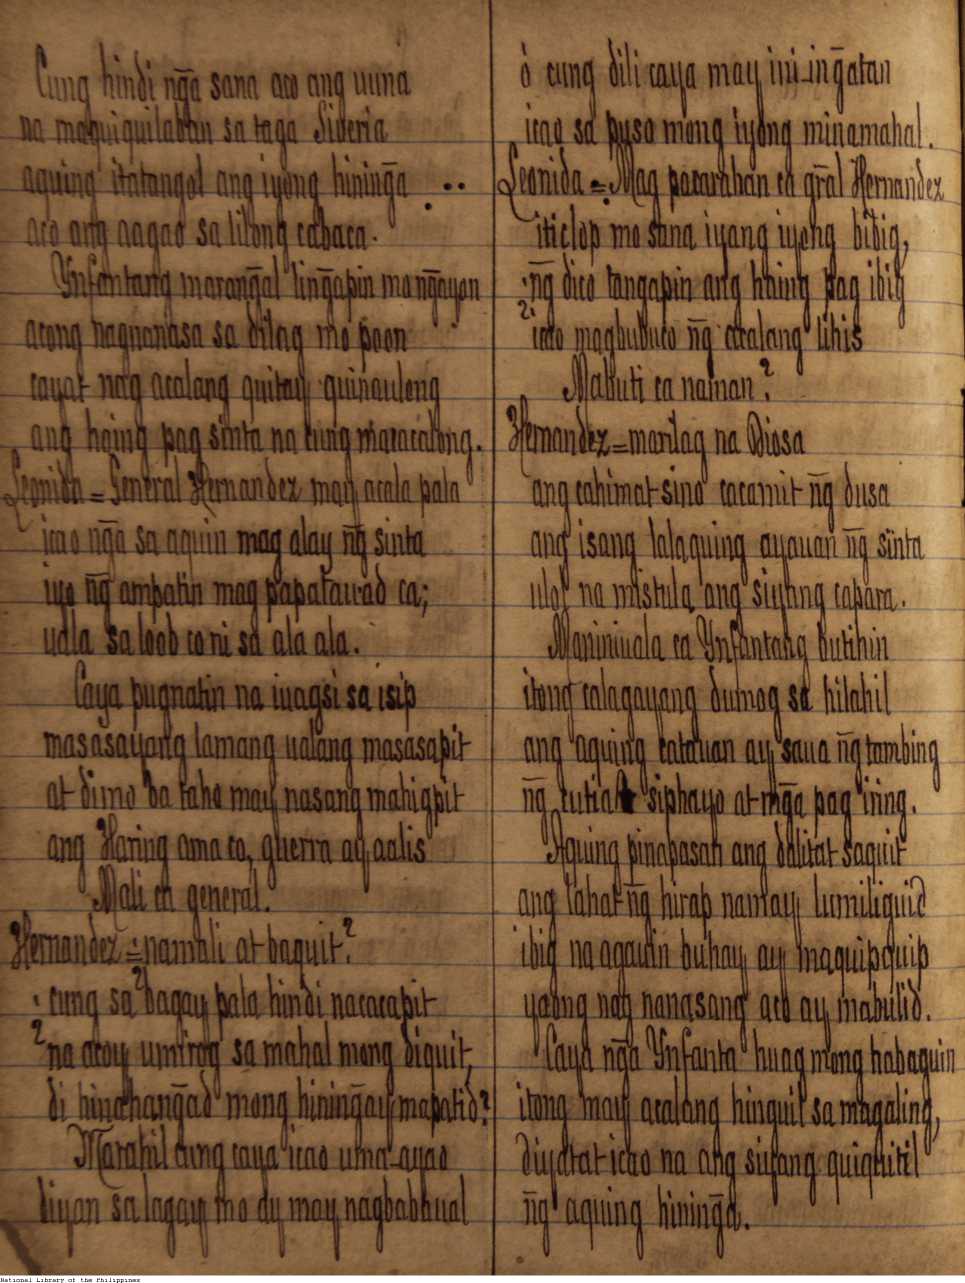 Cung hindi ng̃a sana aco ang uuna
na maquiquilaban sa taga Siberia
aquing itatangol ang iyong hining̃a
aco ang aagao sa lilong cabaca.
Ynfantang marang̃al ling̃apin mong̃ayon
acong nagnanasa sa dilag mo poon
cayat nag acalang quitay quinauleng
ang haing pag sinta na cung maracalong.
Leonida = General Hernandez may acala pala
icao ng̃a sa aquin mag alay ng̃ sinta
iyo ng̃ ampatin mag papatauad ca;
uala sa loob co ni sa ala ala.
Caya pugnatin na iuagsi sa isip
masasayang lamang ualang masasapit
at dimo ba taho may nasang mahigpit
ang Haring ama co, guerra ay aalis
Mali ca general.
Hernandez = namali at baquit?
¿cung sa bagay pala hindi nacacapit
na acoy umirog sa mahal mong diquit,
di hinahang̃ad mong hining̃ay mapatid?
Marahil cung caya icao uma-ayao
diyan sa lagay mo ay may nagbabaual
ò cung dili caya may ini-ing̃atan
icao sa puso mong iyong minamahal.
Leonida = Mag pacarahan ca gr̃al Hernandez
iticlop mo sana iyang iyong bibig,
ng̃ dico tangapin ang haing pag ibig
¿icao magbubuco ng̃ acalang lihis
Mabuti ca naman?
Hernandez = marilag na Diosa
ang cahimat sino cacamit ng̃ dusa
ang isang lalaquing ayauan ng̃ sinta
ulol na mistula ang siyang capara.
Maniniuala ca Ynfantang butihin
itong calagayang dumog sa hilahil
ang aquing catauan ay saua ng̃ tambing
ng̃ cutiat siphayo at mg̃a pag iring.
Aquing pinapasan ang dalitat saquit
ang lahat ng̃ hirap namay lumiliguid
ibig na agauin buhay ay maquipquip
yaong nag nanasang aco ay mabulid.
Caya ng̃a Ynfanta huag mong habaguin
itong may acalang hinguil sa magaling,
diyatat icao na ang siyang quiquitil
ng̃ aquing hining̃a.
National Library of the Philippines